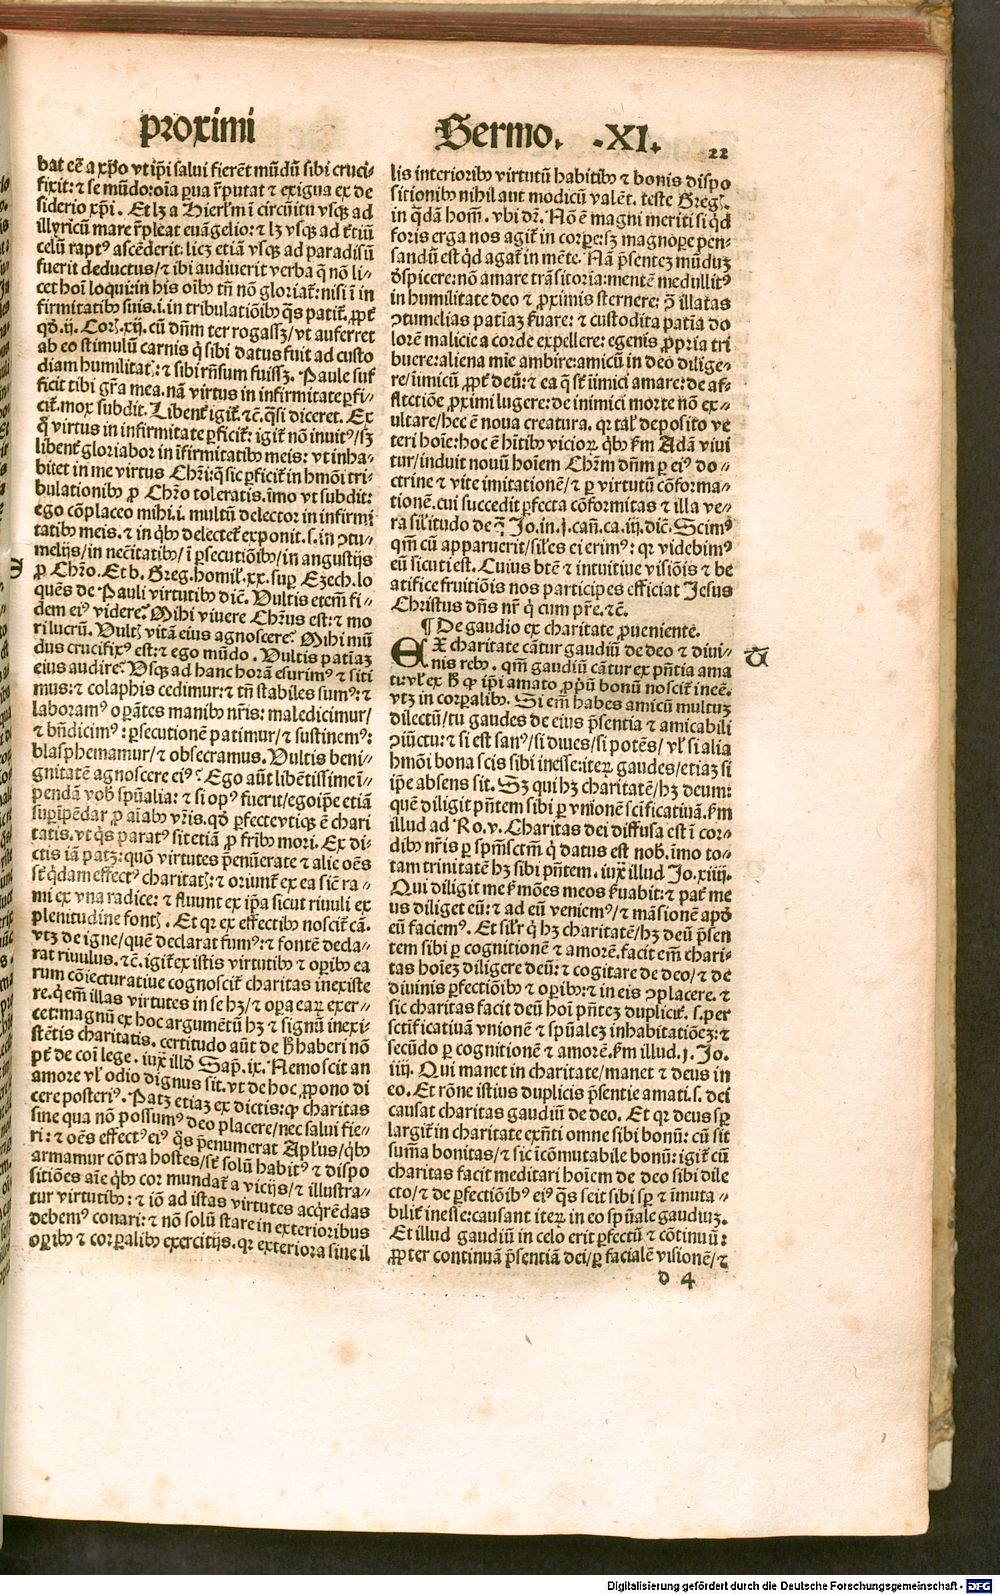 proximi
Sermo. .XI. 22
bat eē a xp̄o vt ip̄i salui fierēt mūdū sibi cruci-
fixit: ⁊ se mūdo: oīa ꝑua r̄putat ⁊ exigua ex de
siderio xp̄i. Et lꝫ a Hierl'm ī circuītu vsqꝫ ad
illyricū mare r̄pleat euāgelio: ⁊ lꝫ vsqꝫ ad t̄tiū
celū raptꝰ ascēderit: licꝫ etiā vsqꝫ ad paradisū
fuerit deductus/⁊ ibi audiuerit verba q̄ nō li-
cet hoī loqui: in his oībꝰ tn̄ nō gloriat̄: nisi ī in
firmitatibꝰ suis .i. in tribulatiōibꝰ q̄s patit̄. ꝓpt̄
qđ .ij. Coꝝ. xij. cū dn̄m ter rogassꝫ/ vt auferret
ab eo stimulū carnis q̄ sibi datus fuit ad custo
diam humilitatꝭ: ⁊ sibi rn̄sum fuissꝫ. Paule suf
ficit tibi gr̄a mea. nā virtus in infirmitate ꝑfi-
cit̄. mox subdit. Libent̄ igit̄ ⁊c̄. q̄si diceret. Ex
q̄ virtus in infirmitate ꝑficit̄: igit̄ nō inuitꝰ/ sꝫ
libent̄ gloriabor in īfirmitatibꝰ meis: vt inha-
bitet in me virtus Chr̄i: q̄ sic ꝑficit̄ in hmōi tri-
bulationibꝰ ꝓ Chr̄o toleratis. īmo vt subdit:
ego cōplaceo mihi .i. multū delector in infirmi
tatibꝰ meis. ⁊ in qͥbꝰ delectet̄ exponit. s. in ꝯtu-
melijs/in nec̄itatibꝰ/ ī ꝑsecutiōibꝰ/in angustijs
ꝓ Chr̄o. Et b. Greg. homil'. xx. suꝑ Ezech. lo
quēs de Pauli virtutibꝰ dic̄. Vultis etem̄ fi-
dem eiꝰ videre? Mihi viuere Chr̄us est: ⁊ mo
ri lucrū. Vultꝭ vitā eius agnoscere? Mihi mū
dus crucifixꝰ est: ⁊ ego mūdo. Vultis patīaꝫ
eius audire? Vsqꝫ ad hanc horā esurimꝰ ⁊ siti
mus: ⁊ colaphis cedimur: ⁊ tn̄ stabiles sumꝰ: ⁊
laboramꝰ oꝑātes manibꝰ nr̄is: maledicimur/
⁊ bn̄dicimꝰ: ꝑsecutionē patimur/⁊ sustinemꝰ:
blasphemamur/⁊ obsecramus. Vultis beni-
gnitatē agnoscere eiꝰ? Ego aūt libētissime ī-
pendā vob̄ spūalia: ⁊ si opꝰ fuerit/ego ip̄e etiā
suꝑīpēdar ꝓ aīabꝰ vr̄is. qđ ꝑfecte vtiqꝫ ē chari
tatis. vt q̄s paratꝰ sit etiā ꝓ fr̄ibꝰ mori. Ex di-
ctis iā patꝫ: quō virtutes p̄enūerate ⁊ alie oēs
st̄ q̄dam effectꝰ charitatꝭ: ⁊ oriunt̄ ex ea sic ra-
mi ex vna radice: ⁊ fluunt ex ip̄a sicut riuuli ex
plenitudine fontꝭ. Et qꝛ ex effectibꝰ noscit̄ cā.
vtꝫ de igne/quē declarat fumꝰ: ⁊ fontē decla-
rat riuulus. ⁊c̄. igit̄ ex istis virtutibꝰ ⁊ oꝑibꝰ ea
rum cōiecturatiue cognoscit̄ charitas inexiste
re. q̄ em̄ illas virtutes in se hꝫ/⁊ oꝑa eaꝝ exer-
cet: magnū ex hoc argumētū hꝫ ⁊ signū inexi-
stētis charitatis. certitudo aūt de h̄ haberi nō
pt̄ de cōi lege. iux̄ illđ Sap̄. ix. Nemo scit an
amore vl' odio dignus sit. vt de hoc ꝓpono di
cere posteriꝰ. Patꝫ etiaꝫ ex dictis: ꝙ charitas
sine qua nō possumꝰ deo placere/nec salui fie-
ri: ⁊ oēs effectꝰ eiꝰ q̄s p̄enumerat Apl'us/qͥbꝰ
armamur cōtra hostes/st̄ solū habitꝰ ⁊ dispo
sitiōes aīe qͥbꝰ cor mundat̄ a vicijs/⁊ illustra-
tur virtutibꝰ: ⁊ iō ad istas virtutes acq̄rēdas
debemꝰ conari: ⁊ nō solū stare in exterioribus
oꝑibꝰ ⁊ corꝑalibꝰ exercitijs. qꝛ exteriora sine il
lis interioribꝰ virtutū habitibꝰ ⁊ bonis dispo
sitionibꝰ nihil aut modicū valēt. teste Greg.
in q̄dā hom̄. vbi dr̄. Nō ē magni meriti si q̄d
foris erga nos agit̄ in corꝑe: sꝫ magnoꝑe pen-
sandū est q̄d agat̄ in mēte. Nā p̄sentez mūduꝫ
đspicere: nō amare trāsitoria: mentē medullitꝰ
in humilitate deo ⁊ ꝓximis sternere: ꝯ̄ illatas
ꝯtumelias patīaꝫ ẜuare: ⁊ custodita patīa do
lorē malicie a corde expellere: egenis ꝓpria tri
buere: aliena mīe ambire: amicū in deo dilige-
re/inimicū ꝓpt̄ deū: ⁊ ea q̄ st̄ inimici amare: de af-
flictiōe ꝓximi lugere: de inimici morte nō ex-
ultare/hec ē noua creatura. qꝛ tal' deposito ve
teri hoīe: hoc ē hītibꝰ vicioꝝ qͥbꝰ ẜm Adā viui
tur/induit nouū hoīem Chr̄m dn̄m ꝑ eiꝰ do-
ctrine ⁊ vite imitationē/⁊ ꝑ virtutū cōforma-
tionē. cui succedit ꝑfecta cōformitas ⁊ illa ve-
ra sil'itudo de q̄ Jo. in .j. cañ. ca. iij. dic̄. Scimꝰ
qm̄ cū apparuerit/sil'es ei erimꝰ: qꝛ videbimꝰ
eū sicuti est. Cuius btē ⁊ intuitiue visiōis ⁊ be
atifice fruitiōis nos participes efficiat Jesus
Christus dn̄s nr̄ q̄ cum pr̄e. ⁊c̄.
¶ De gaudio ex charitate ꝓueniente.
EX charitate cātur gaudiū de deo ⁊ diui-
nis rebꝰ. qm̄ gaudiū cātur ex pn̄tia ama
ti: vl' ex h̄ ꝙ ip̄i amato ꝓpiū bonū noscit̄ ineē.
vtꝫ in corꝑalibꝰ. Si em̄ habes amicū multuꝫ
dilectū/tu gaudes de eius p̄sentia ⁊ amicabili
ꝯiūctu: ⁊ si est sanꝰ/si diues/si potēs/ vl' si alia
hmōi bona scis sibi inesse: iteꝝ gaudes/etiaꝫ si
ip̄e absens sit. Sꝫ qui hꝫ charitatē/hꝫ deum:
quē diligit pn̄tem sibi ꝑ vnionē sc̄ificatiuā. ẜm
illud ad Ro. v. Charitas dei diffusa est ī cor-
dibꝰ nr̄is ꝑ spm̄sctm̄ q̄ datus est nob̄. īmo to-
tam trinitatē hꝫ sibi pn̄tem. iux̄ illud Jo. xiiij.
Qui diligit me ẜmōes meos ẜuabit: ⁊ pat̄ me
us diliget eū: ⁊ ad eū veniemꝰ/⁊ māsionē apđ
eū faciemꝰ. Et sil'r q̄ hꝫ charitatē/hꝫ deū p̄sen
tem sibi ꝑ cognitionē ⁊ amorē. facit em̄ chari-
tas hoīeꝫ diligere deū: ⁊ cogitare de deo/⁊ de
diuinis ꝑfectiōibꝰ ⁊ oꝑibꝰ: ⁊ in eis ꝯplacere. ⁊
sic charitas facit deū hoī pn̄tez duplicit̄. s. per
sctificatiuā vnionē ⁊ spūalez inhabitatiōeꝫ: ⁊
secūdo ꝑ cognitionē ⁊ amorē. ẜm illud .j. Jo.
iiij. Qui manet in charitate/manet ⁊ deus in
eo. Et rōne istius duplicis p̄sentie amati. s. dei
causat charitas gaudiū de deo. Et qꝛ deus sꝑ
largit̄ in charitate exn̄ti omne sibi bonū: cū sit
sum̄a bonitas/⁊ sic icōmutabile bonū: igit̄ cū
charitas facit meditari hoīem de deo sibi dile
cto/⁊ de ꝑfectiōibꝰ eiꝰ q̄s scit sibi sꝑ ⁊ īmuta-
bilit̄ inesse: causant iteꝝ in eo spūale gaudiuꝫ.
Et illud gaudiū in celo erit ꝑfectū ⁊ cōtinuū:
ꝓpter continuā p̄sentiā dei/ꝑ facialē visionē/⁊
d 4
Digitalisierung gefördert durch die Deutsche Forschungsgemeinschaft - DFG